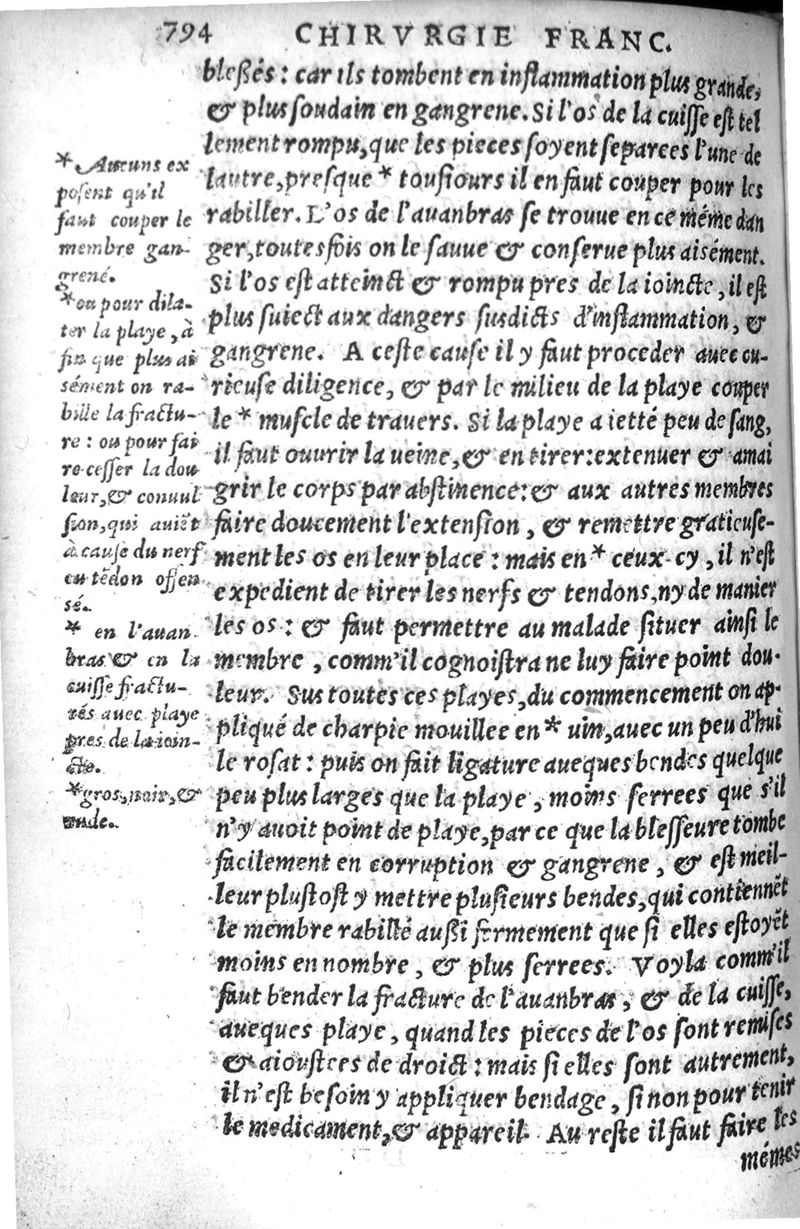 794 CHIRVRGIE FRANC.
bleßés : car ils tombent en inflammation plus grande,
& plus soudain en gangrene. Si l'os de la cuisse est tel
lement rompu, que les pieces soyent separees l'une de
lautre, presque * tousiours il en faut couper pour les
rabiller. L'os de l'auanbras se trouue en ce méme dan
ger, toutesfois on le sauue & conserue plus aisément.
Si l'os est atteinct & rompu pres de la ioincte, il est
plus suiect aux dangers susdicts d'inflammation, &
gangrene. A ceste cause il y faut proceder auec cu-
rieuse diligence, & par le milieu de la playe couper
le * muscle de trauers. Si la playe a ietté peu de sang,
il faut ouurir la ueine, & en tirer: extenuer & amai
grir le corps par abstinence: & aux autres membres
faire doucement l'extension, & remettre gratieuse-
ment les os en leur place : mais en * ceux-cy, il n'est
expedient de tirer les nerfs & tendons, ny de manier
les os : & faut permettre au malade situer ainsi le
membre, comm'il cognoistra ne luy faire point dou-
leur. Sus toutes ces playes, du commencement on ap-
pliqué de charpie mouillee en * uin, auec un peu d'hui
le rosat : puis on fait ligature aueques bendes quelque
peu plus larges que la playe, moins serrees que s'il
n'y auoit point de playe, par ce que la blesseure tombe
facilement en corruption & gangrene, & est meil-
leur plustost y mettre plusieurs bendes, qui contiennẽt
le membre rabillé außi fermement que si elles estoyẽt
moins en nombre, & plus serrees. Voyla comm'il
faut bender la fracture de l'auanbras, & de la cuisse,
aueques playe, quand les pieces de l'os sont remises
& aioustees de droict : mais si elles sont autrement,
il n'est besoin y appliquer bendage, sinon pour tenir
le medicament, & appareil. Au reste il faut faire les
mémes
* Aucuns ex
posent qu'il
faut couper le
membre gan-
grené.
* ou pour dila-
ter la playe, à
fin que plus ai
sément on ra-
bille la fractu-
re : ou pour fai
re cesser la dou
leur, & conuul
sion, qui auiẽt
à cause du nerf
ou tẽdon offen
sé.
* en l'auan-
bras & en la
cuisse fractu-
rés auec playe
pres de la ioin-
cte.
* gros, noir, &
rude.